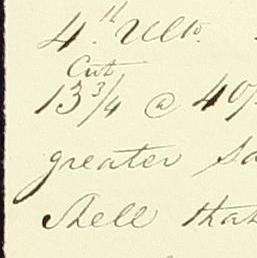 4th Ulto.
Cwt
13 3/4 @ 40/
greater sa
Shell that